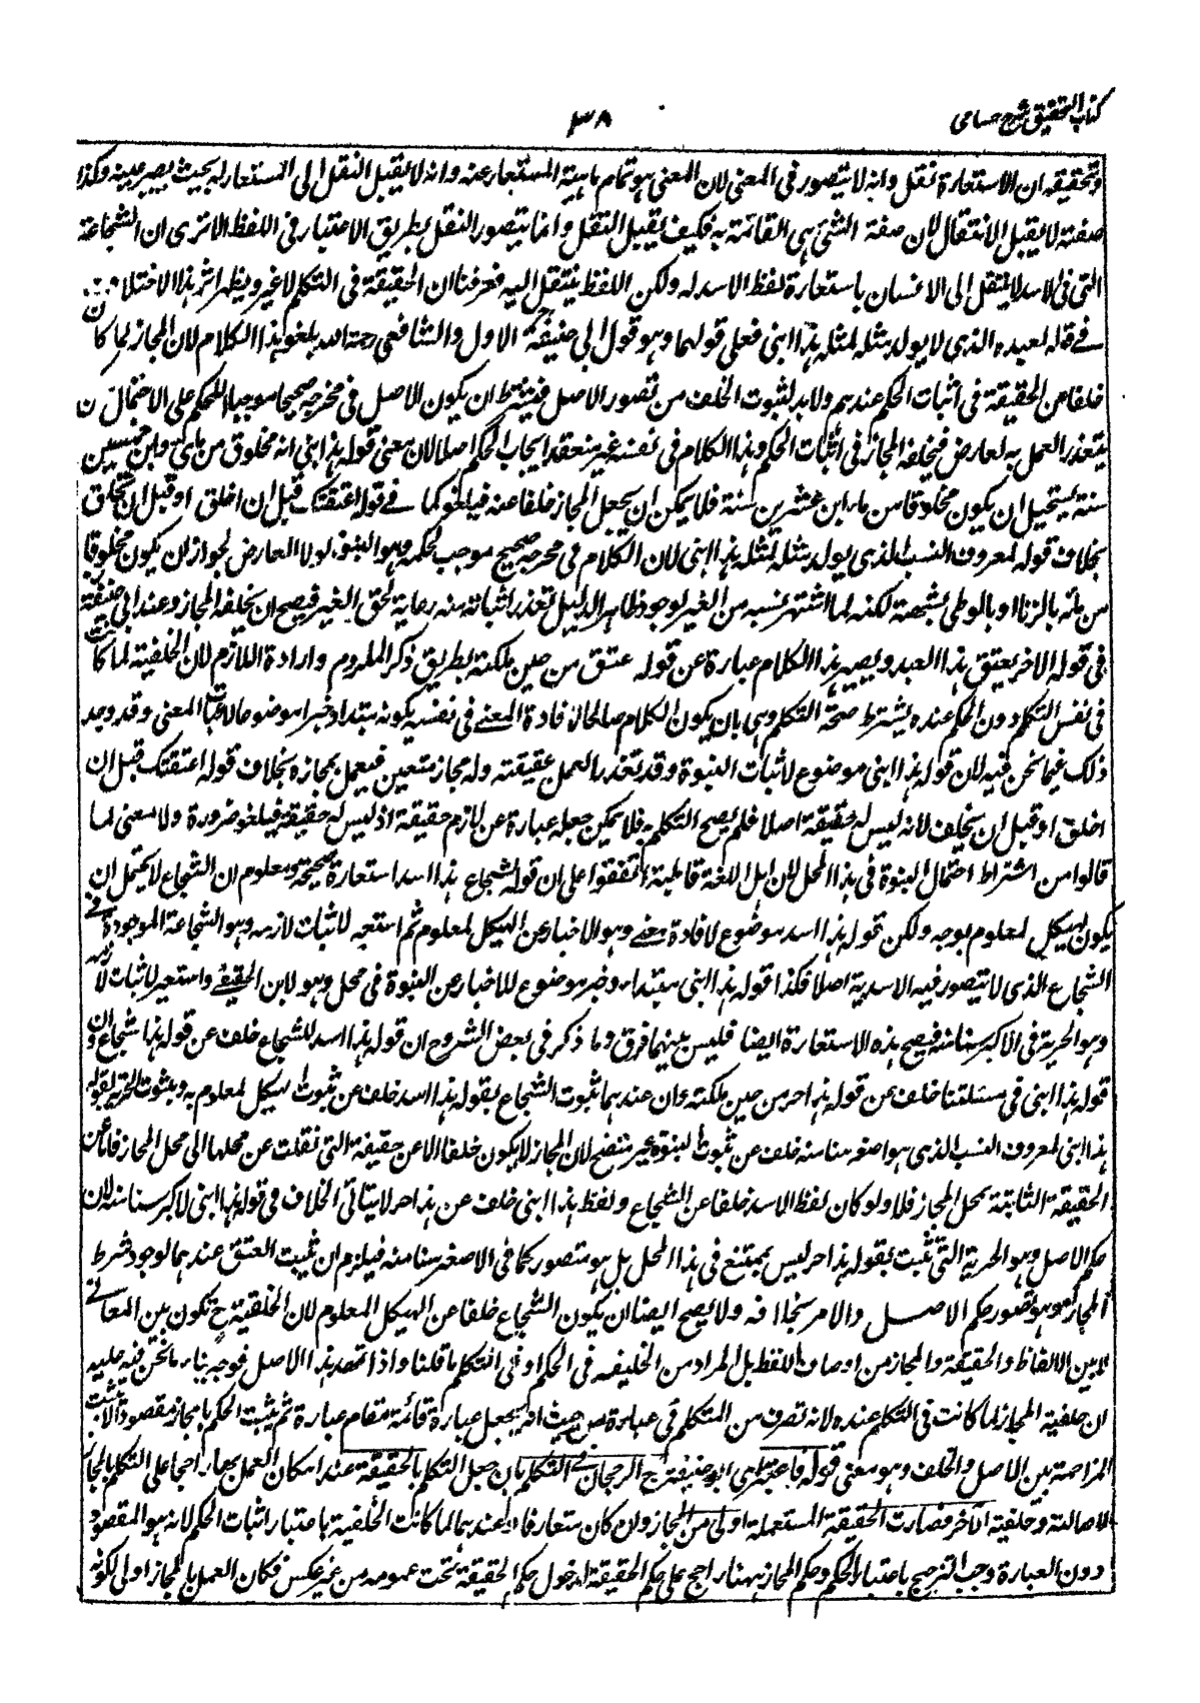 كتاب التحقيق شرح حسامى
٣٨
وتحقيقه ان الاستعارة نقل وانه لا يتصور فى المعنى لان المعنى هو تمام ماهية المستعار عنه وانه لا يقبل النقل الى المستعار له بحيث يصير عينه وكذا
صفته لا يقبل الانتقال لان صفة الشئ هى القائمة به فكيف يقبل النقل وانما يتصور النقل بطريق الاعتبار فى اللفظ الا ترى ان الشجاعة
التى فى الاسد لا ينتقل الى الانسان باستعارة لفظ الاسد له ولكن اللفظ ينتقل اليه فعرفنا ان الحقيقة فى التكلم لا غير ويظهر اثر هذا الاختلاف
فى قوله لعبده الذى لا يولد مثله لمثله هذا ابنى فعلى قولهما وهو قول ابى حنيفة الاول والشافعى رحمة الله يلغو هذا الكلام لان المجاز لما كان
خلفا عن الحقيقة فى اثبات الحكم عندهم ولا بد لثبوت الخلف من تصور الاصل فيشترط ان يكون الاصل فى مخرجه صحيحا موجبا للحكم على الاحتمال
يتعذر العمل به لعارض فيخلفه المجاز فى اثبات الحكم وهذا الكلام فى نفسه غير منعقد لايجاب الحكم اصلا لان معنى قوله هذا ابنى انه مخلوق من مائى وابن خمسين
سنة يستحيل ان يكون مخلوقا من ماء ابن عشرين سنة فلا يمكن ان يجعل المجاز خلفا عنه فيلغو كما فى قوله اعتقتك قبل ان اخلق او قبل ان تخلق
بخلاف قوله لمعروف النسب الذى يولد مثله لمثله هذا ابنى لان الكلام فى مخرجه صحيح موجب لحكمه وهو البنوة لولا العارض لجواز ان يكون مخلوقا
من مائه بالزنا او بالوطى بشبهة لكنه لما اشتهر نسبه من الغير لوجود ظاهر الدليل تعذر اثباته منه رعاية لحق الغير فيصح ان يخلفه المجاز وعند ابى حنيفة
فى قوله الاخر يعتق هذا العبد ويصير هذا الكلام عبارة عن قوله عتق من حين ملكته بطريق ذكر الملزوم وارادة اللازم لان الخلفية لما كانت
فى نفس التكلم دون الحكم عنده يشترط صحة التكلم وهى بان يكون الكلام صالحا لافادة المعنى فى نفسه بكونه مبتدا وخبرا موضوعا لاثبات المعنى وقد وجد
ذلك فيما نحن فيه لان قوله هذا ابنى موضوع لاثبات البنوة وقد تعذر العمل بحقيقته وله مجاز متعين فيعمل بمجازه بخلاف قوله اعتقتك قبل ان
اخلق او قبل ان تخلق لانه ليس له حقيقة اصلا فلم يصح التكلم به فلا يمكن جعله عبارة عن لازم حقيقة اذ ليس له حقيقة فيلغو ضرورة ولا معنى لما
قالوا من اشتراط احتمال البنوة فى هذا المحل لان اهل اللغة قاطبة اتفقوا على ان قوله لشجاع هذا اسد استعارة صحيحة ومعلوم ان الشجاع لا يحتمل ان
يكون الهيكل المعلوم بوجه ولكن قوله هذا اسد موضوع لافادة معنى وهو الاخبار عن الهيكل المعلوم ثم استعير لاثبات لازمه وهو الشجاعة الموجودة فى
الشجاع الذى لا يتصور فيه الاسدية اصلا فكذا قوله هذا ابنى مبتداء وخبر موضوع للاخبار عن البنوة فى محل وهو الابن الحقيقى واستعير لاثبات لازمه
وهو الحرية فى الاكبر سنا منه فيصح هذه الاستعارة ايضا فليس بينهما فرق وما ذكر فى بعض الشروح ان قوله هذا اسد للشجاع خلف عن قوله هذا شجاع وان
قوله هذا ابنى فى مسئلتنا خلف عن قوله هذا حر من حين ملكته وان عندهما ثبوت الشجاع بقوله هذا اسد خلف عن ثبوت الهيكل المعلوم به وثبوت الحرية بقوله
هذا ابنى لمعروف النسب الذى هو اصغر سنا منه خلف عن ثبوت البنوة غير متضح لان المجاز لا يكون خلفا الا عن حقيقة التى نقلت عن محلها الى محل المجاز فاما عن
الحقيقة الثابتة بمحل المجاز فلا ولو كان لفظ الاسد خلفا عن الشجاع ولفظ هذا ابنى خلف عن هذا حر لا يتاتى الخلاف فى قوله هذا ابنى لاكبر سنا منه لان
حكم الاصل وهو الحرية التى تثبت بقوله هذا حر ليس بممتنع فى هذا المحل بل هو متصور كما فى الاصغر سنا منه فيلزم ان يثبت العتق عندهما لوجود شرط
المجاز وهو تصور حكم الاصل والامر بخلافه ولا يصح ايضا ان يكون الشجاع خلفا عن الهيكل المعلوم لان الخلفية ح تكون بين المعانى
لا بين الالفاظ والحقيقة والمجاز من اوصاف اللفظ بل المراد من الخليفه فى الحكم او فى التكلم ما قلنا واذا تمهد هذا الاصل فوجه بناء ما نحن فيه عليه
ان خلفية المجاز لما كانت فى التكلم عنده لانه تصرف من المتكلم فى عبارة من حيث انه يجعل عبارة قائمة مقام عبارة ثم يثبت الحكم بالمجاز مقصودا لا يثبت
المزاحمة بين الاصل والخلف وهو معنى قوله فاعتبر اى ابو حنيفة رح الرجحان فى التكلم بان جعل التكلم بالحقيقة عند امكان العمل بها راجحا على التكلم بالمجاز
لاصالته وخلفية الآخر فصارت الحقيقة المستعملة اولى من المجاز وان كان متعارفا وعندهما لما كانت الخلفية باعتبار اثبات الحكم لانه هو المقصود
دون العبارة وجب الترجيح باعتبار الحكم وحكم المجاز ههنا راجح على حكم الحقيقة لدخول حكم الحقيقة تحت عمومه من غير عكس فكان العمل بالمجاز اولى لكونه